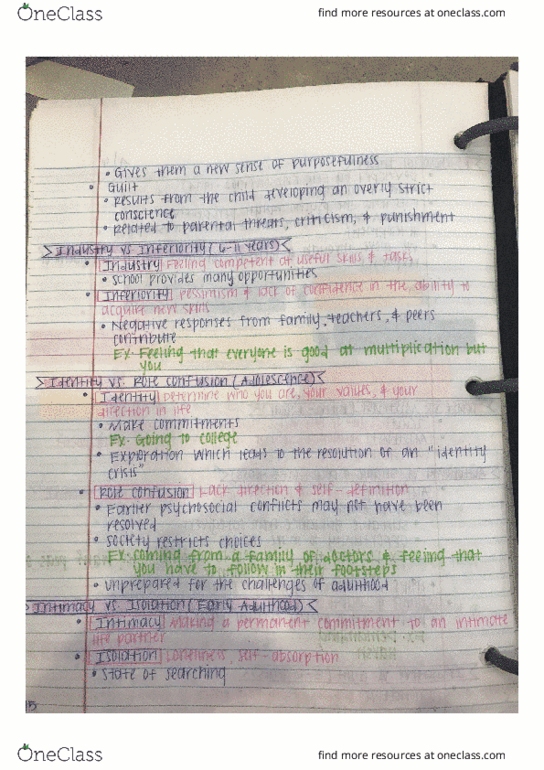 OneClass
find more resources at oneclass.com
• Gives them a new sense of purposefulness
• Guilt
• Results from the child developing an overly strict
conscience
• Related to parental threats, criticism, & punishment
>Industry vs Inferiority (6-11 years)<
• Industry Feeling competent at useful skills & tasks
• School provides many opportunities
• Inferiority Pessimism & lack of confidence in the ability to
acquire new skills
• Negative responses from family, teachers, & peers
contribute
EX: Feeling that everyone is good at multiplication but
you
>Identity vs. Role Confusion (Adolescence)<
• Identity Determine who you are, your values, & your
direction in life
• Make commitments
EX: Going to college
• Exploration which leads to the resolution of an "identity
crisis"
• Role confusion Lack direction & self-definition
• Earlier psychosocial conflicts may not have been
resolved
• Society restricts choices
EX: Coming from a family of doctors & feeling that
you have to follow in their footsteps
• Unprepared for the challenges of adulthood
Intimacy vs. Isolation (Early Adulthood)<
• Intimacy Making a permanent commitment to an intimate
life partner
• Isolation Loneliness, self-absorption
• State of searching
15
OneClass
find more resources at oneclass.com